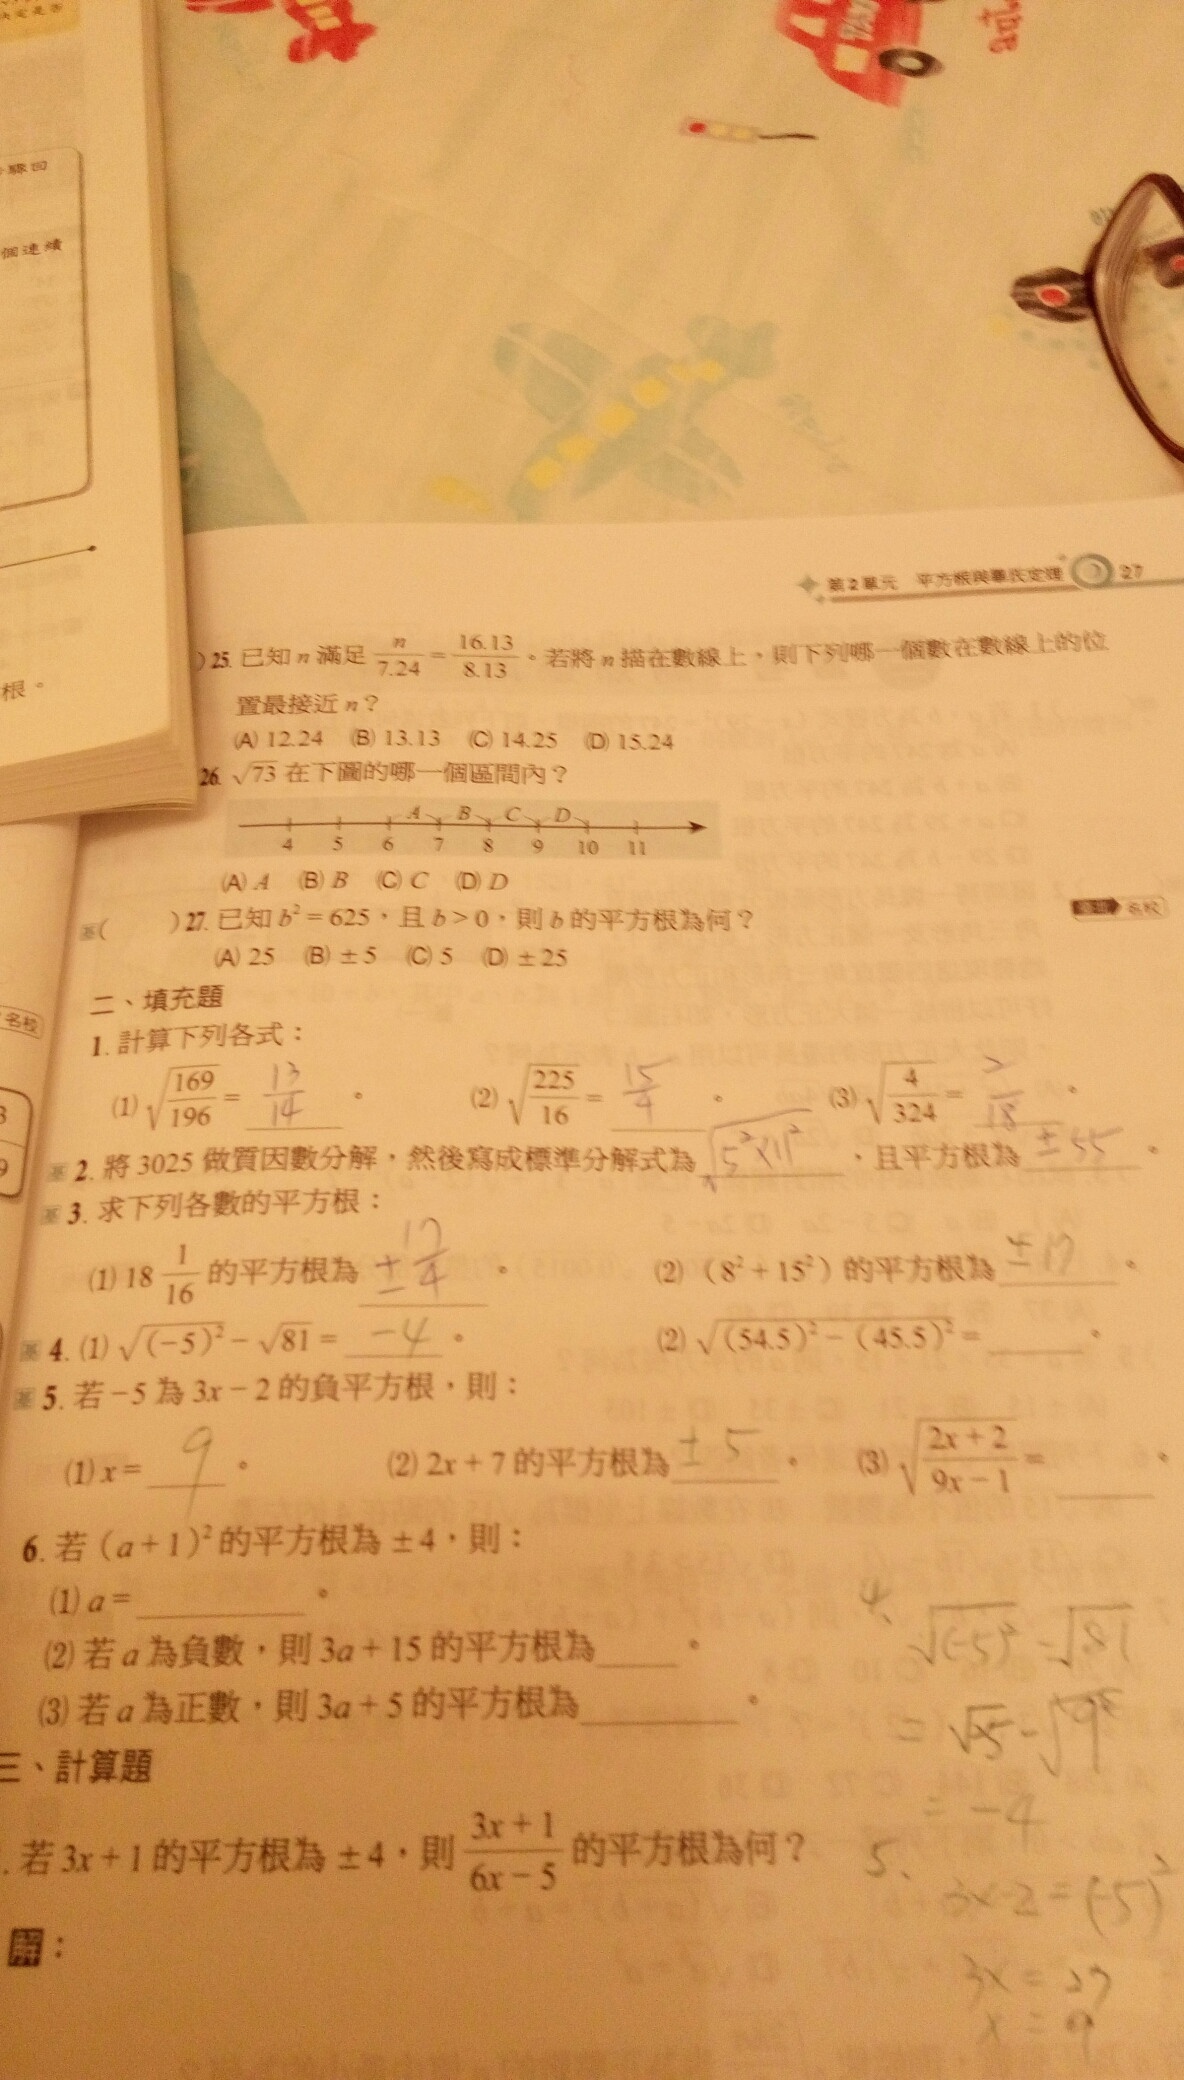 決定是否
驟回
個連續
根。
名校
第2單元 平方根與畢氏定理 27
)25. 已知 n 滿足 n/7.24 = 16.13/8.13。若將 n 描在數線上，則下列哪一個數在數線上的位
置最接近 n？
(A) 12.24 (B) 13.13 (C) 14.25 (D) 15.24
26. √73 在下圖的哪一個區間內？
A B C D
4 5 6 7 8 9 10 11
(A) A (B) B (C) C (D) D
基( )27. 已知 b² = 625，且 b > 0，則 b 的平方根為何？ 名校
(A) 25 (B) ±5 (C) 5 (D) ±25
二、填充題
1. 計算下列各式：
(1) √(169/196) = 13/14。 (2) √(225/16) = 15/4。 (3) √(4/324) = 2/18。
基 2. 將 3025 做質因數分解，然後寫成標準分解式為 √(5²×11²)，且平方根為 ±55。
基 3. 求下列各數的平方根：
(1) 18 1/16 的平方根為 ±17/4。 (2)（8² + 15²）的平方根為 ±17。
基 4. (1) √(-5)² - √81 = -4。 (2) √((54.5)² - (45.5)²) = 。
基 5. 若 -5 為 3x - 2 的負平方根，則：
(1) x = 9。 (2) 2x + 7 的平方根為 ±5。 (3) √((2x + 2)/(9x - 1)) = 。
6. 若（a + 1）² 的平方根為 ±4，則：
(1) a = 。
(2) 若 a 為負數，則 3a + 15 的平方根為 。
(3) 若 a 為正數，則 3a + 5 的平方根為 。
三、計算題
. 若 3x + 1 的平方根為 ±4，則 (3x + 1)/(6x - 5) 的平方根為何？
解：
4. √(-5)² - √81
= √25 - √9²
= -4
5. 3x-2 = (-5)²
3x = 27
x = 9